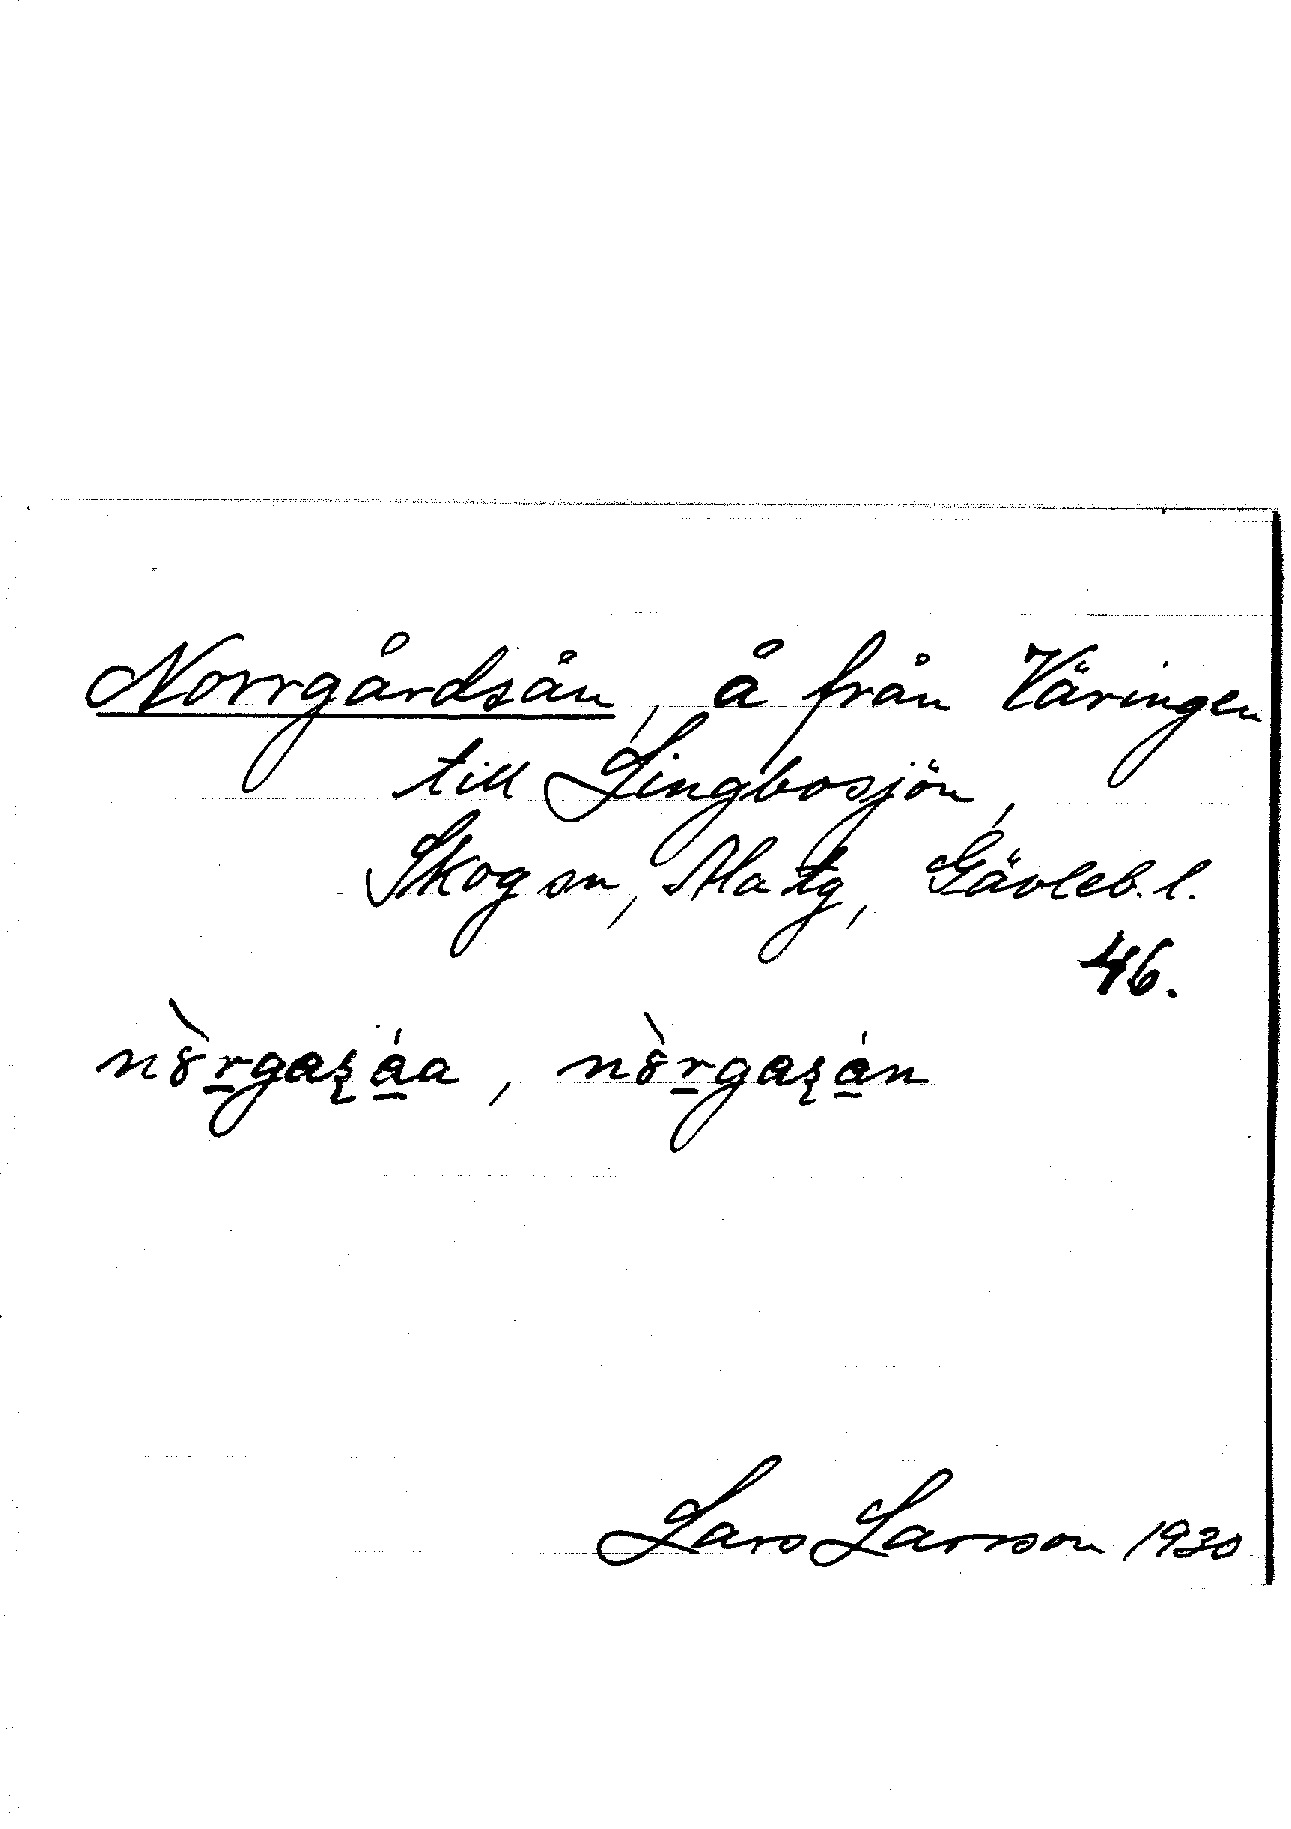 Norrgårdsån, å från Väringen
till Lingbosjön,
Skog sn, Ala tg, Gävleb. l.
46.
nȍrgaʂáa, nȍrgaʂán
Lars Larsson 1930